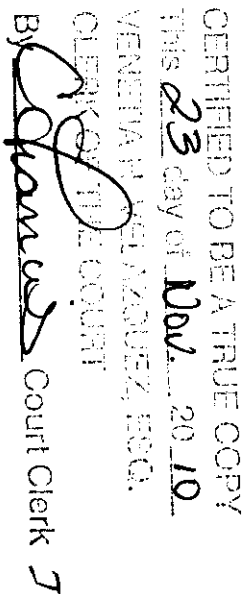 CERTIFIED TO BE A TRUE COPY
This 23 day of Nov. 2010
VENETIA H. VELAZQUEZ, ESQ.
CLERK OF THE COURT
By Court Clerk